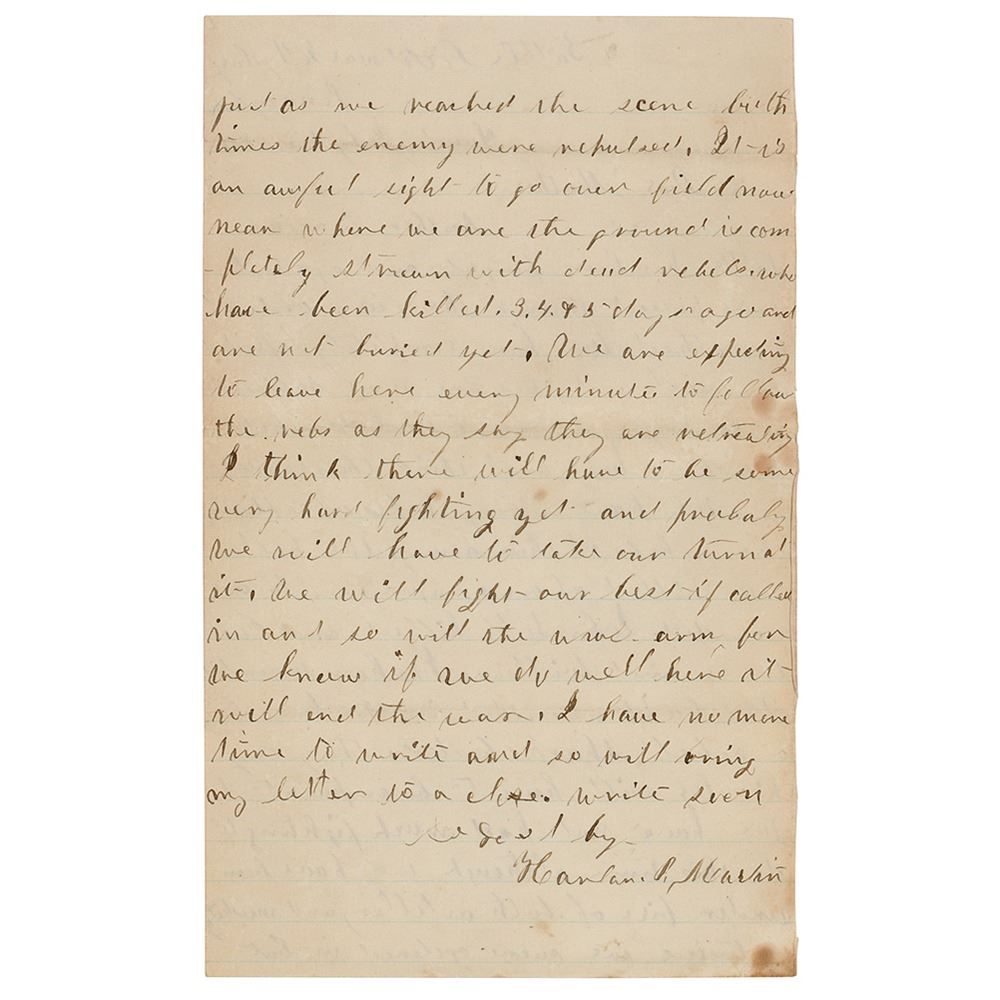 just as we reached the scene both
times the enemy were repulsed. It is
an awful sight to go over field now
near where we are the ground is com
-pletely strewn with dead rebels who
have been killed. 3. 4. & 5 days ago and
are not buried yet. We are expecting
to leave here every minute to follow
the rebs as they say they are retreating
I think there will have to be some
very hard fighting yet and probably
we will have to take our turn at
it. We will fight our best if called
in and so will the arm for
we know if we do well here it
will end the war. I have no more
time to write and so will bring
my letter to a close. write soon
good by
Harlan. P. Martin